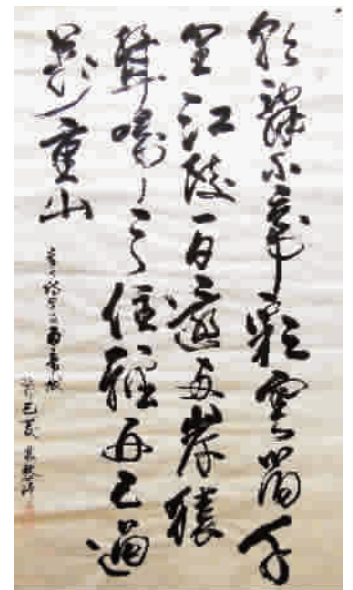 朝辭白帝彩雲間千
里江陵一日還兩岸猿
聲啼不住輕舟已過
萬重山
癸巳夏